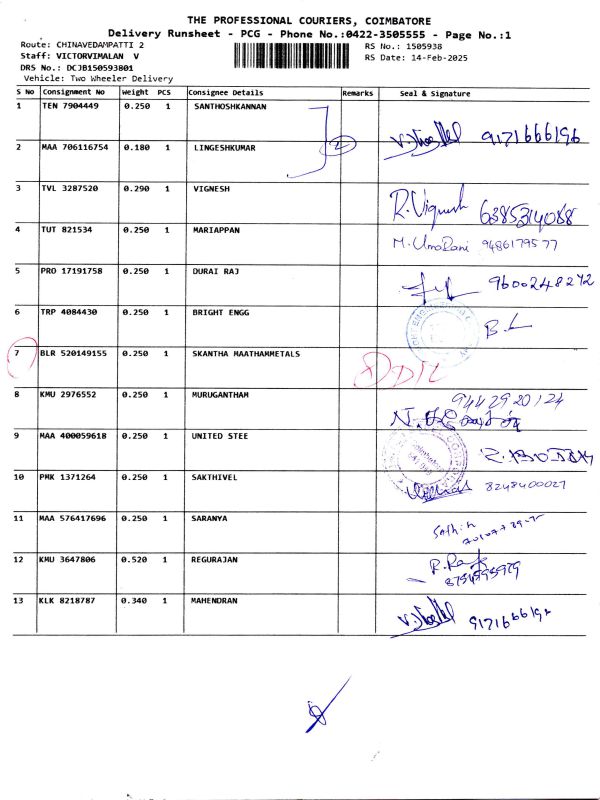 THE PROFESSIONAL COURIERS, COIMBATORE
Delivery Runsheet - PCG - Phone No.:0422-3505555 - Page No.:1
Route: CHINAVEDAMPATTI 2 RS No.: 1505938
Staff: VICTORVIMALAN V RS Date: 14-Feb-2025
DRS No.: DCJB150593801
Vehicle: Two Wheeler Delivery
S No Consignment No Weight PCS Consignee Details Remarks Seal & Signature
1 TEN 7904449 0.250 1 SANTHOSHKANNAN
2 MAA 706116754 0.180 1 LINGESHKUMAR 2 9171666196
3 TVL 3287520 0.290 1 VIGNESH R.Vignesh 6385314088
4 TUT 821534 0.250 1 MARIAPPAN M. UmaRani 9486179577
5 PRO 17191758 0.250 1 DURAI RAJ 9600248272
6 TRP 4084430 0.250 1 BRIGHT ENGG
7 BLR 520149155 0.250 1 SKANTHA MAATHAMMETALS
8 KMU 2976552 0.250 1 MURUGANTHAM 9442920124
9 MAA 400059618 0.250 1 UNITED STEE
10 PMK 1371264 0.250 1 SAKTHIVEL 8248400027
11 MAA 576417696 0.250 1 SARANYA
12 KMU 3647806 0.520 1 REGURAJAN
13 KLK 8218787 0.340 1 MAHENDRAN 9171666196